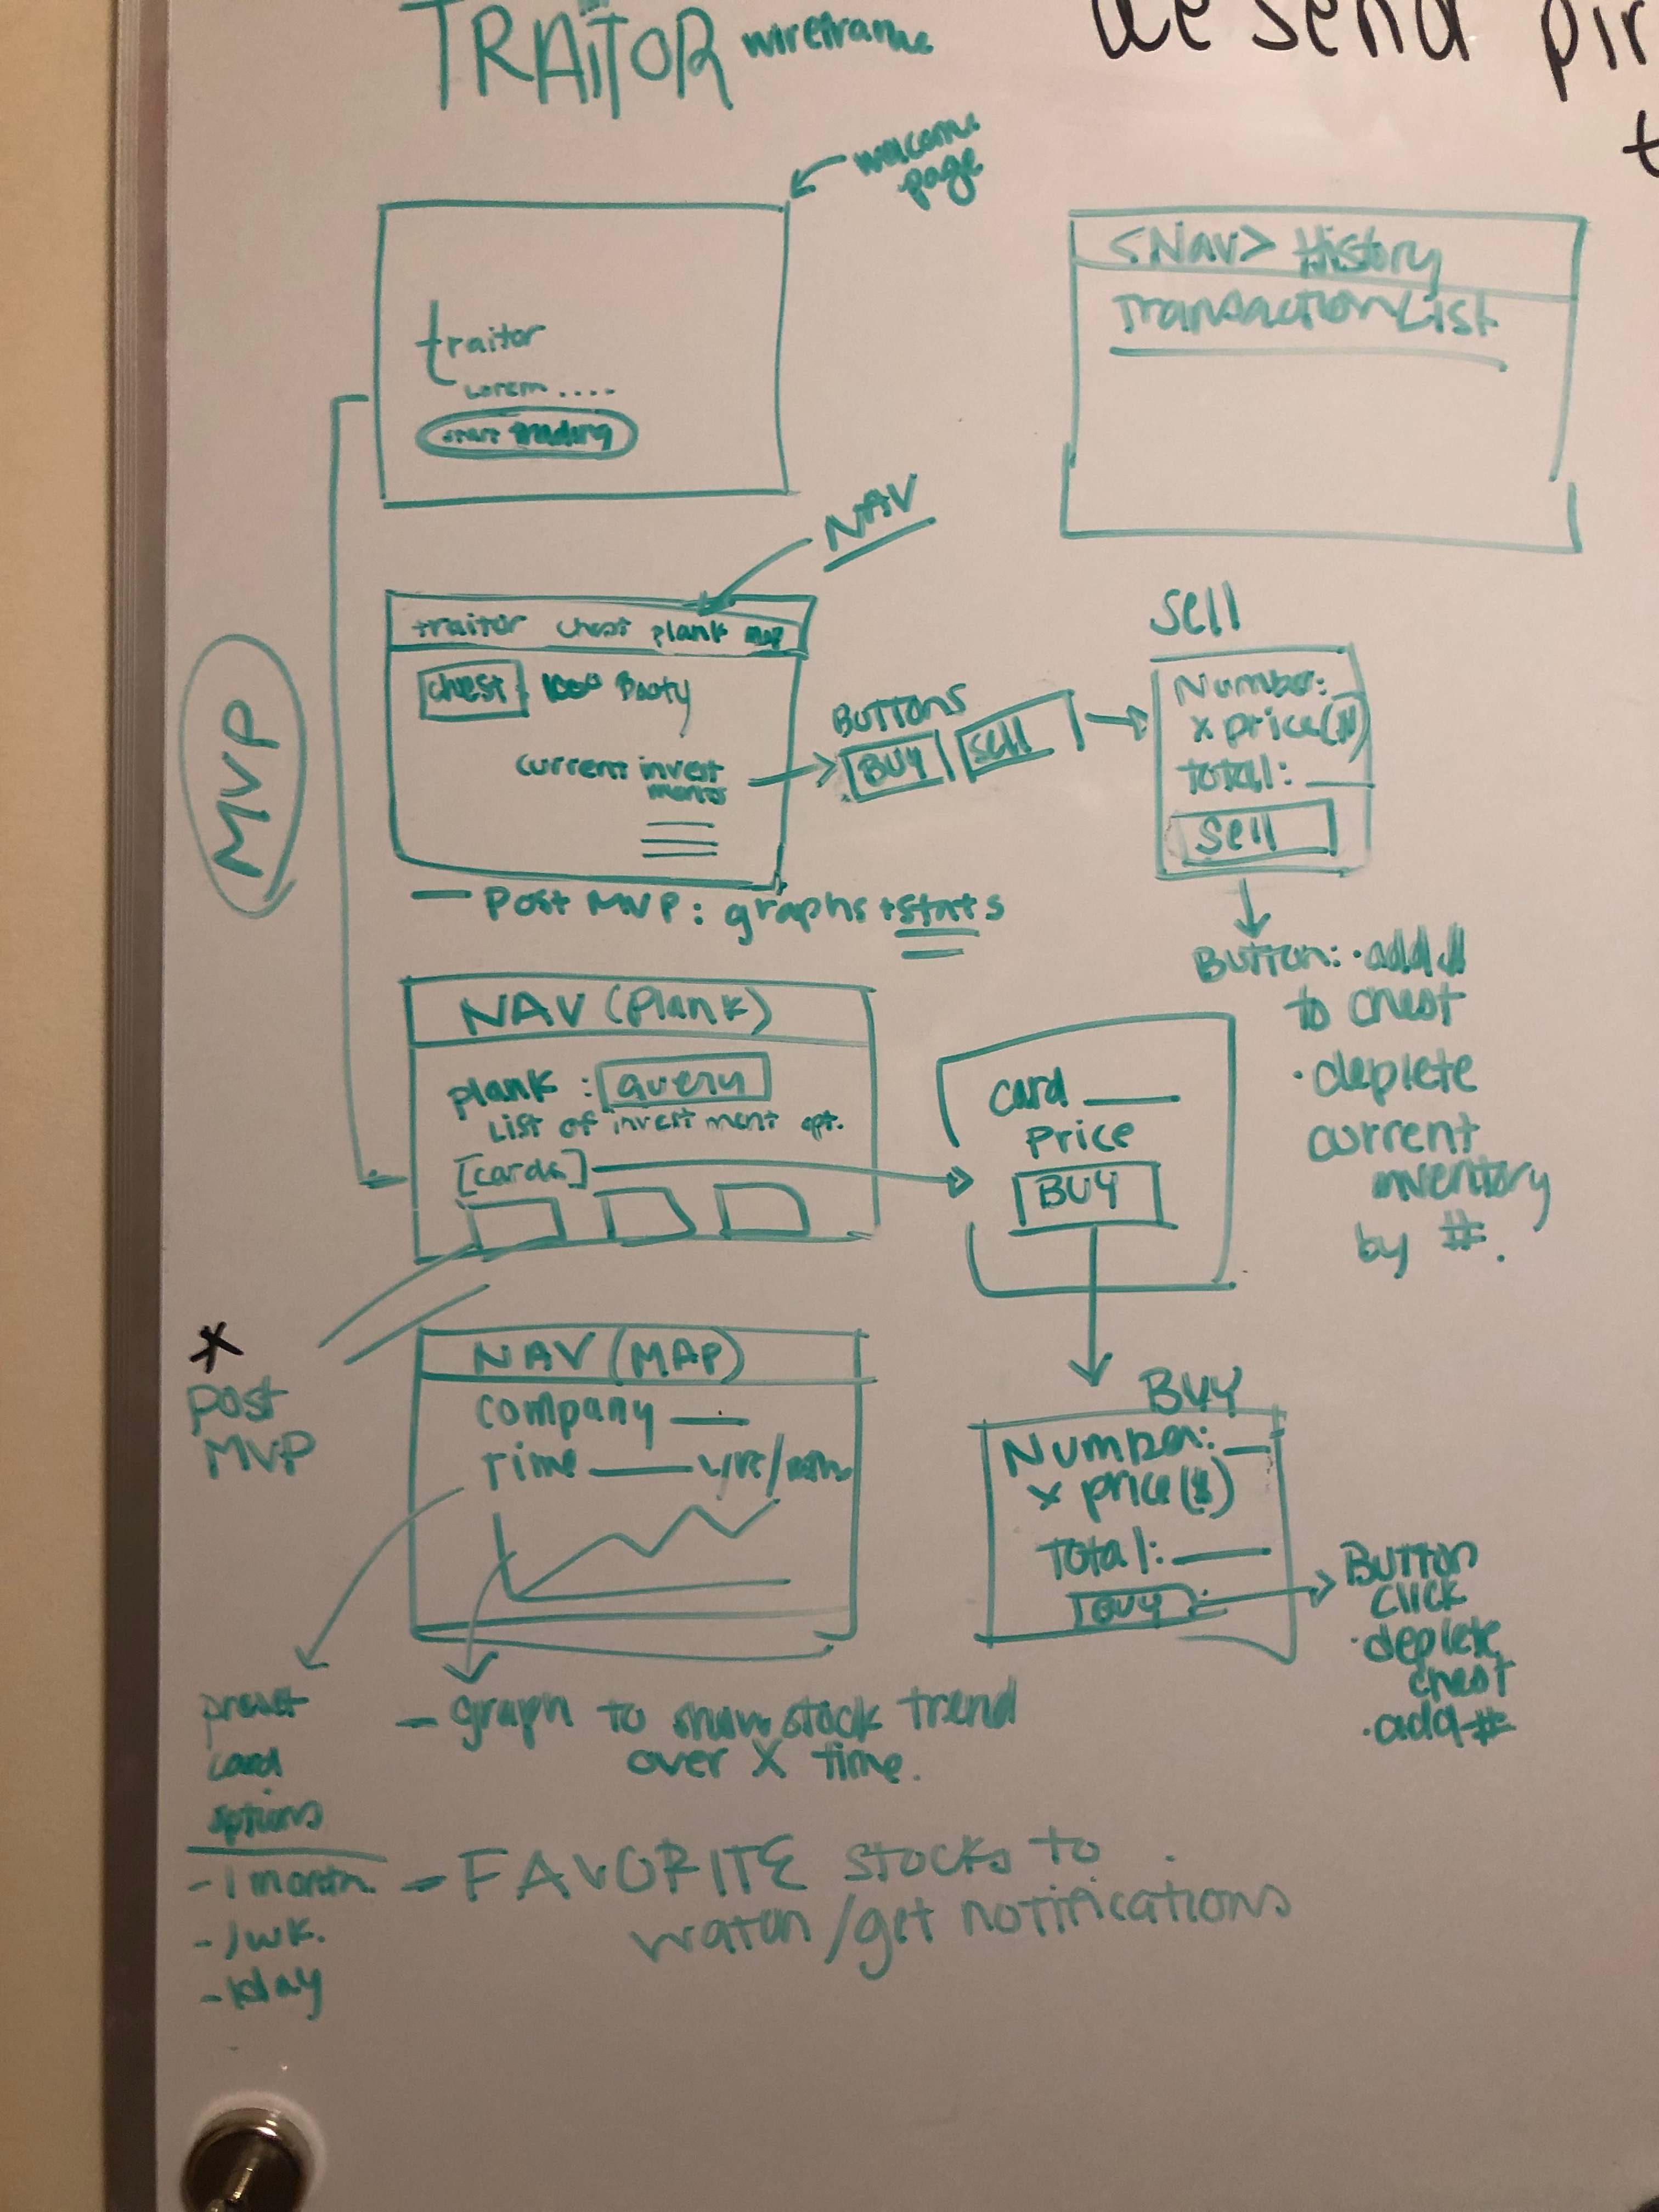 TRAITOR wireframe
We send pir
t
welcome
page
traitor
Lorem ....
start trading
<Nav> History
Transaction List
NAV
traitor chest plank map
chest Booty
current invest
ments
Buttons
BUY sell
Sell
Number:
x price(#)
total:
Sell
MVP
- Post MVP: graphs + stats
Button: · add #
to chest
· deplete
current
inventory
by #.
NAV (plank)
plank : query
List of investment opt.
[cards]
card
Price
BUY
*
Post
MVP
NAV (MAP)
company
Time yrs/
BUY
Number:
x price($)
total:
BUY
Button
click
· deplete
chest
· add #
preset
card
options
- 1 month.
- 1wk.
- 1day
- graph to show stock trend
over X time.
- FAVORITE stocks to
watch/get notifications